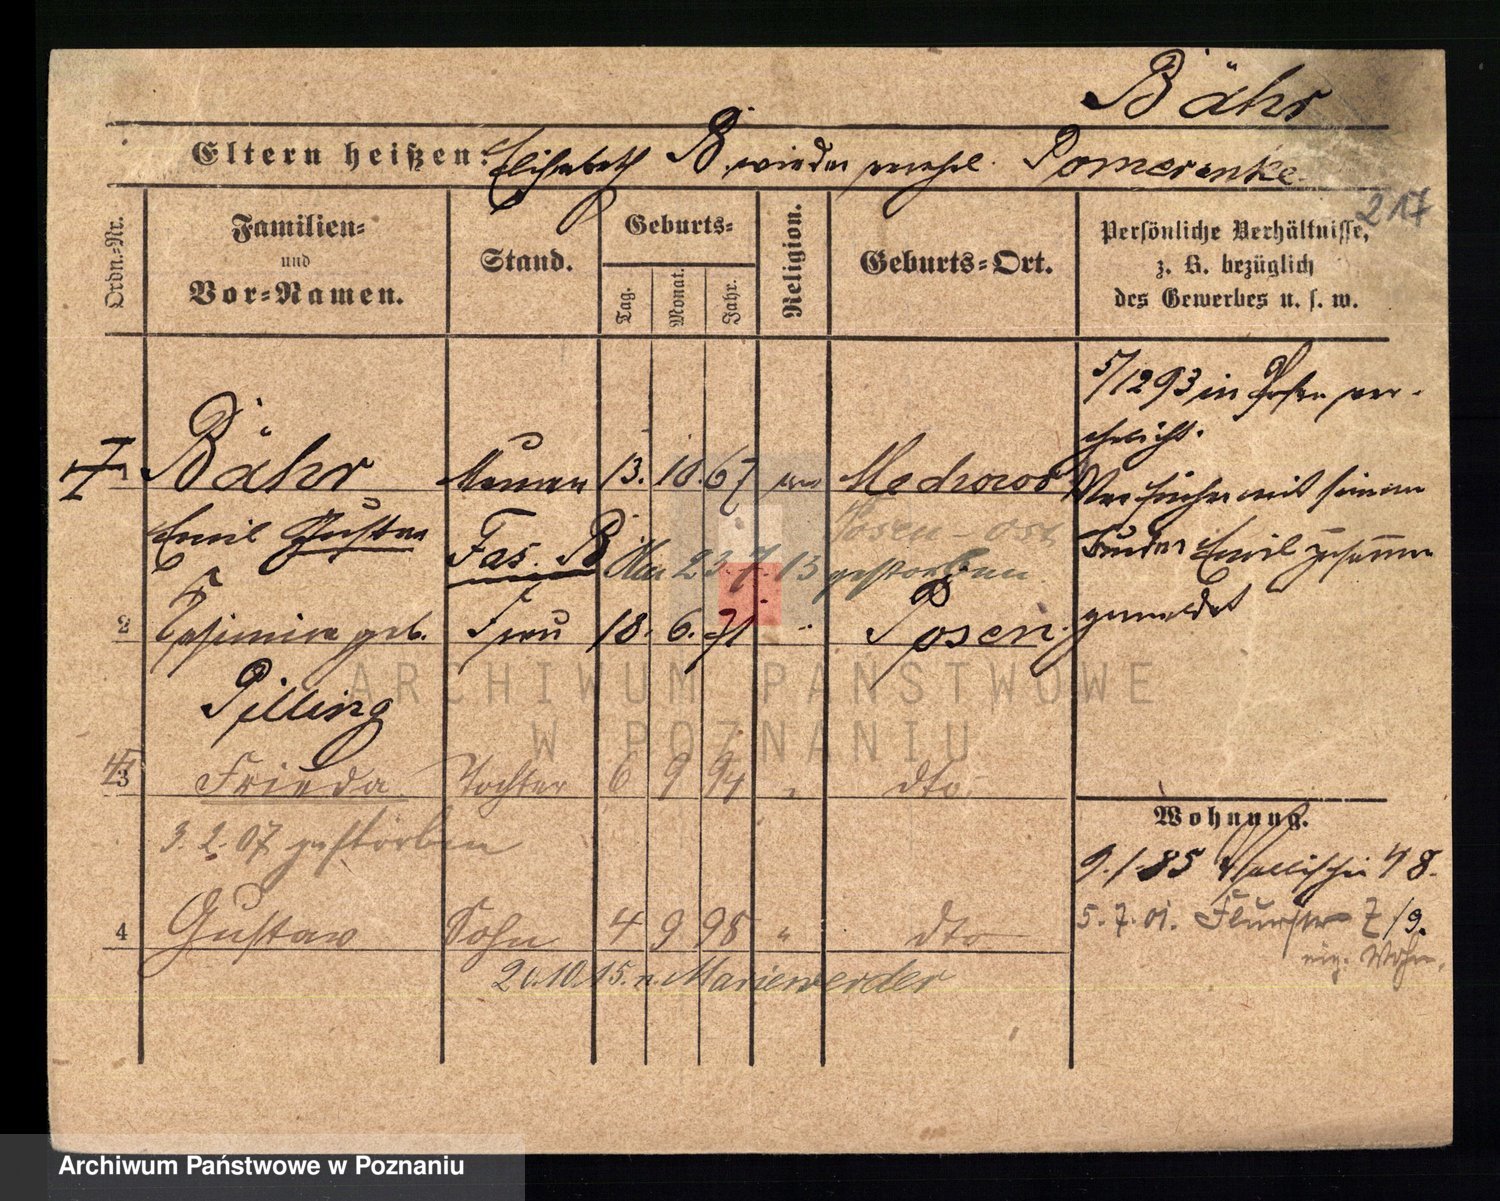 Bähr
Eltern heißen: Elisabeth B. wieder verehel. Pomerenke.
217
Ordn.-Nr.
Familien-
und
Vor-Namen.
Stand.
Geburts-
Tag.
Monat.
Jahr.
Religion.
Geburts-Ort.
Persönliche Verhältnisse,
z. B. bezüglich
des Gewerbes u. s. w.
5/12 93 in Posen ver-
ehelicht.
1 Bähr Maurer 13. 10. 67
Emil Gustav
Posen-Ost
23.7.13 gestorben
Bruder Emil
gemeldet
2 Casimira geb. Frau 18. 6. 71 " Posen.
Pilling
3 Frieda Tochter 6 9 94 " dto.
3.2.07 gestorben
Wohnung.
9.1.85 Wallischei 48.
4 Gustav Sohn 4 9 98 " dto
5.7.01. Flurstr 7/9.
eig. Wohn.
20.10.15. n. Marienwerder
ARCHIWUM PAŃSTWOWE
W POZNANIU
Archiwum Państwowe w Poznaniu